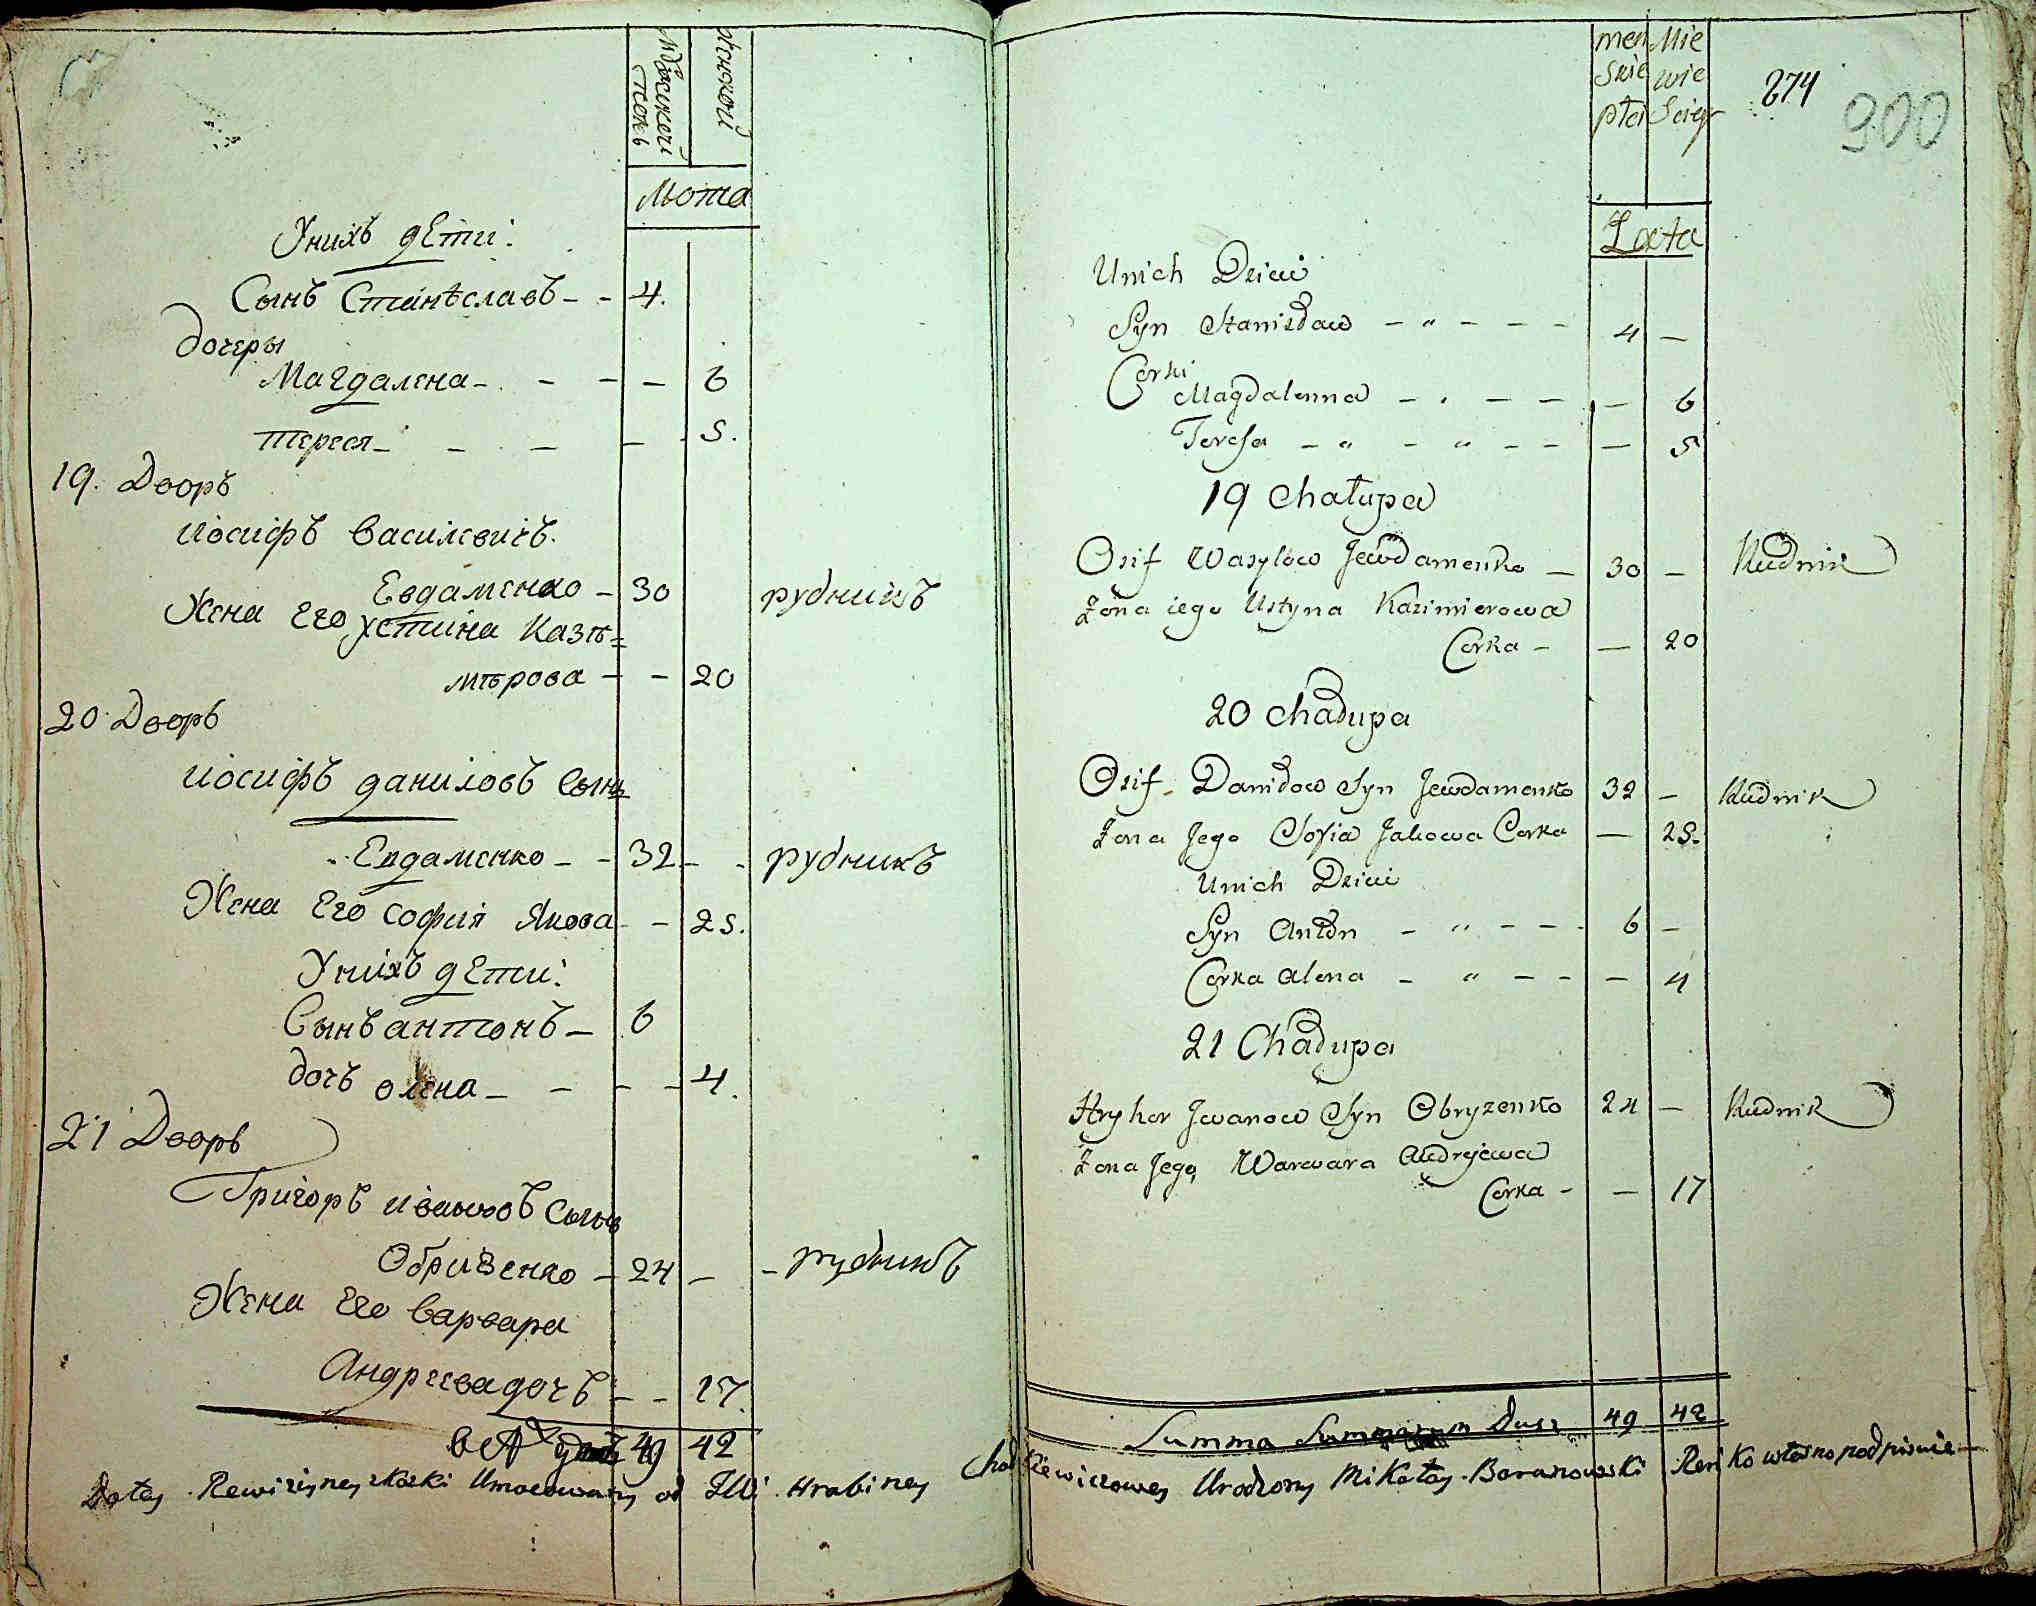 женской
Лѣта
Унихъ дѣти:
Сынъ Станѣславъ - - 4.
дочеры
Магдалена - - - - 6
тереся - - - - 5.
19. Дворъ
иосифъ василевичъ
Евдаменко - 30 рудникъ
Жена Его устина Казѣ=
мѣрова - - 20
20 Дворъ
иосифъ даниловъ сынъ
Евдаменко - - 32 - - рудникъ
Жена Его софия Якова - - 25.
Унихъ дѣти:
Сынъ антонъ - 6
дочъ олена - - - - 4.
21 Дворъ
Григоръ ивановъ сынъ
Обризенко - 24 - - рудникъ
Жена Его варвара
Андреева дочъ - - 17.
49 42
Datey Rewizyney skazki Umocowany od JW Hrabiney
274
900
męs Nie
skie wie
płci
Lata
Unich Dzieci
Syn Stanisław - " - - - 4 -
Corki
Magdalenna - . - - - 6
Teresa - " - " - - - 5
19 Chałupa
Osif Wasylow Jewdamenko - 30 - Rudnik
Żona iego Ustyna Kazimierowa
Corka - - 20
20 Chałupa
Osif Daniłow Syn Jewdamenko 32 - Rudnik
Żona Jego Sofia Jakowa Corka - 25.
Unich Dzieci
Syn Anton - " - - - 6 -
Corka Alena - " - - - 4
21 Chałupa
Hryhor Jwanow Syn Obryzenko 24 - Rudnik
Żona Jego Warwara Andrejewa
Corka - - 17
Summa Summarum Dusz 49 42
Chodkiewiczowey Urodzony Mikołay Baranowski Ręką własną podpisuie -